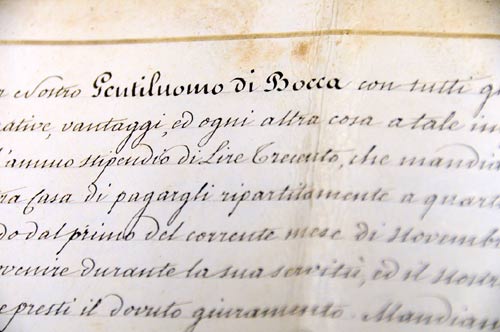 Nostro Gentiluomo di Bocca con tutti
ative, vantaggi, ed ogni altra cosa a tale in
annuo stipendio di Lire Trecento, che mandia
Casa di pagargli ripartitamente a quart
do dal primo del corrente mese di Novemb
venire durante la sua servitù, ed il nost
e presti il dovuto giuramento. Mandiam